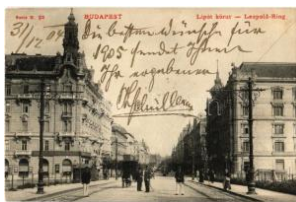 BUDAPEST
Lipót körut — Leopold-Ring
31/12 04
Die besten Wünsche für
1905 sendet Ihnen
Ihr ergebener